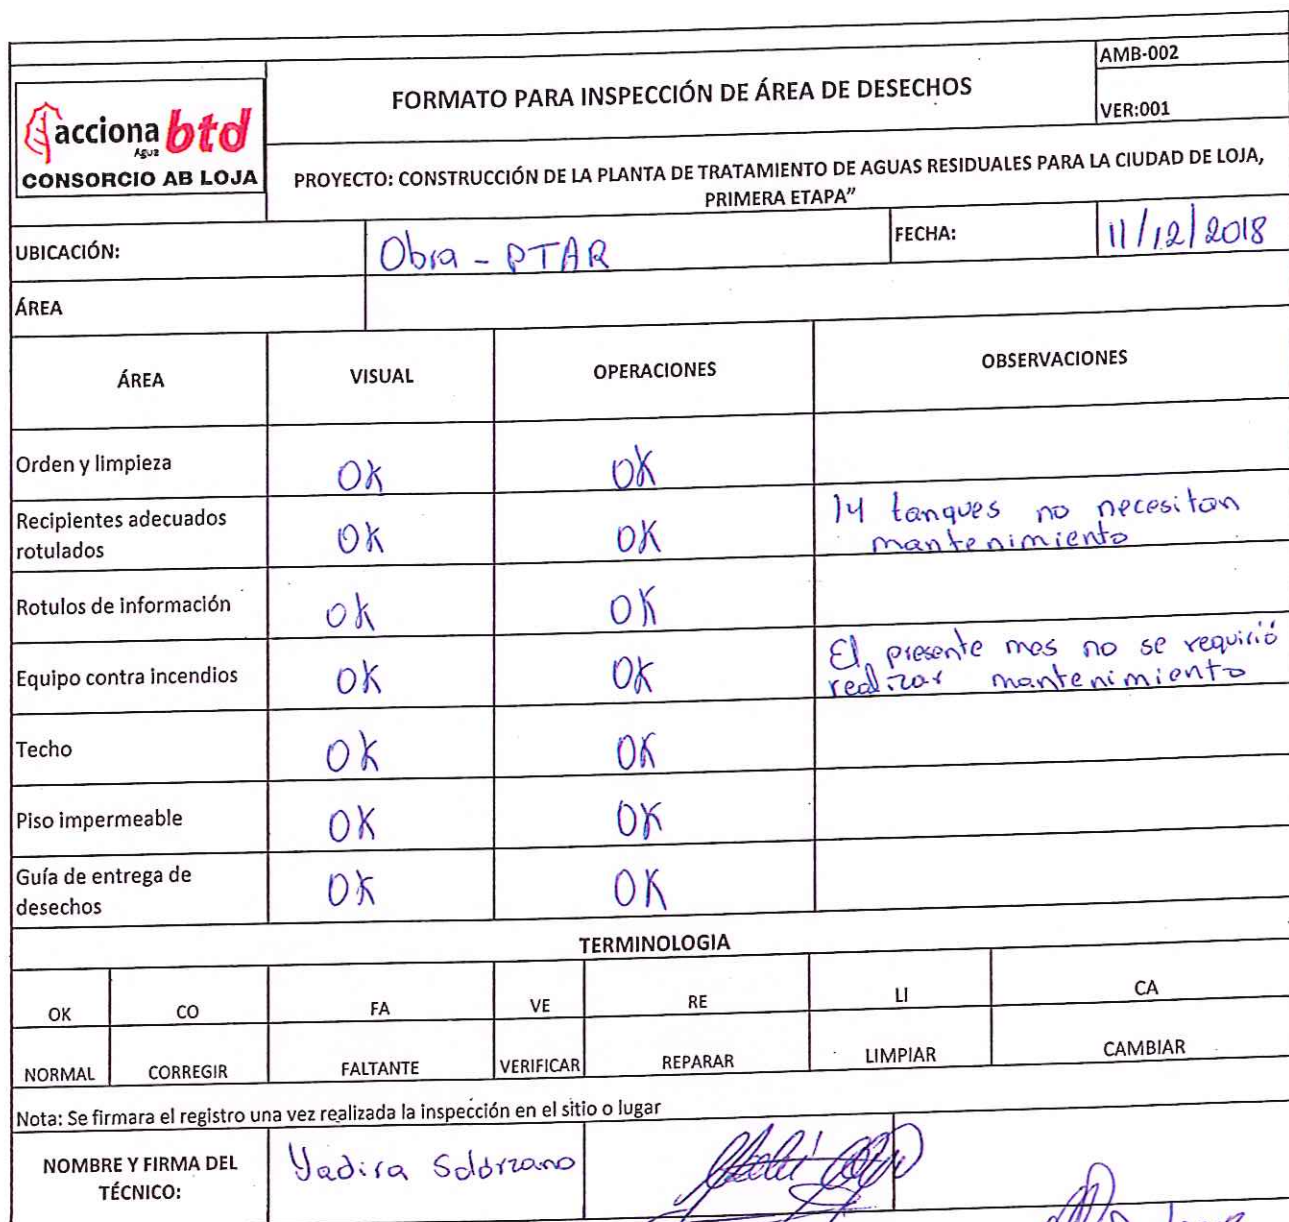 AMB-002
FORMATO PARA INSPECCIÓN DE ÁREA DE DESECHOS
VER:001
acciona btd
Agua
CONSORCIO AB LOJA
PROYECTO: CONSTRUCCIÓN DE LA PLANTA DE TRATAMIENTO DE AGUAS RESIDUALES PARA LA CIUDAD DE LOJA,
PRIMERA ETAPA”
UBICACIÓN: Obra - PTAR FECHA: 11/12/2018
ÁREA
ÁREA VISUAL OPERACIONES OBSERVACIONES
Orden y limpieza OK OK
Recipientes adecuados
rotulados OK OK 14 tanques no necesitan
mantenimiento
Rotulos de información OK OK
Equipo contra incendios OK OK El presente mes no se requirió
realizar mantenimiento
Techo OK OK
Piso impermeable OK OK
Guía de entrega de
desechos OK OK
TERMINOLOGIA
OK CO FA VE RE LI CA
NORMAL CORREGIR FALTANTE VERIFICAR REPARAR LIMPIAR CAMBIAR
Nota: Se firmara el registro una vez realizada la inspección en el sitio o lugar
NOMBRE Y FIRMA DEL
TÉCNICO: Yadira Solórzano